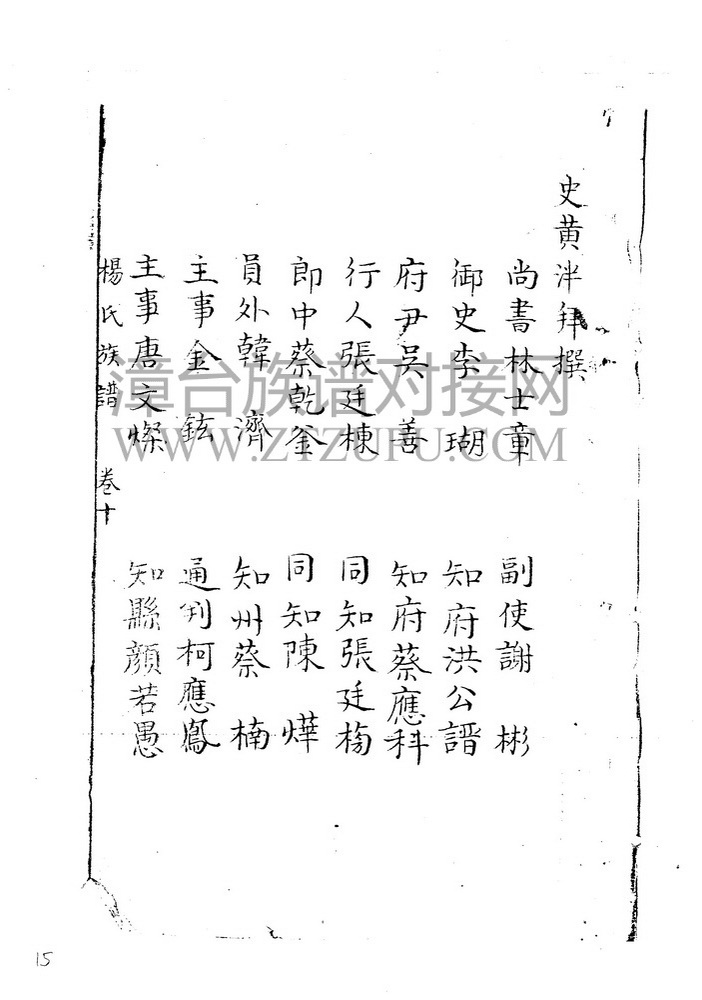 史黄泮拜撰
尚書林士章 副使謝彬
御史李瑚 知府洪公諧
府尹吴善 知府蔡應科
行人張廷棟 同知張廷栲
郎中蔡乾釜 同知陳燁
員外韓濟 知州蔡楠
主事金鉉 通判柯應鳳
主事唐文燦 知縣顏若愚
楊氏族譜 卷十
漳台族谱对接网
WWW.ZTZUFU.COM
15